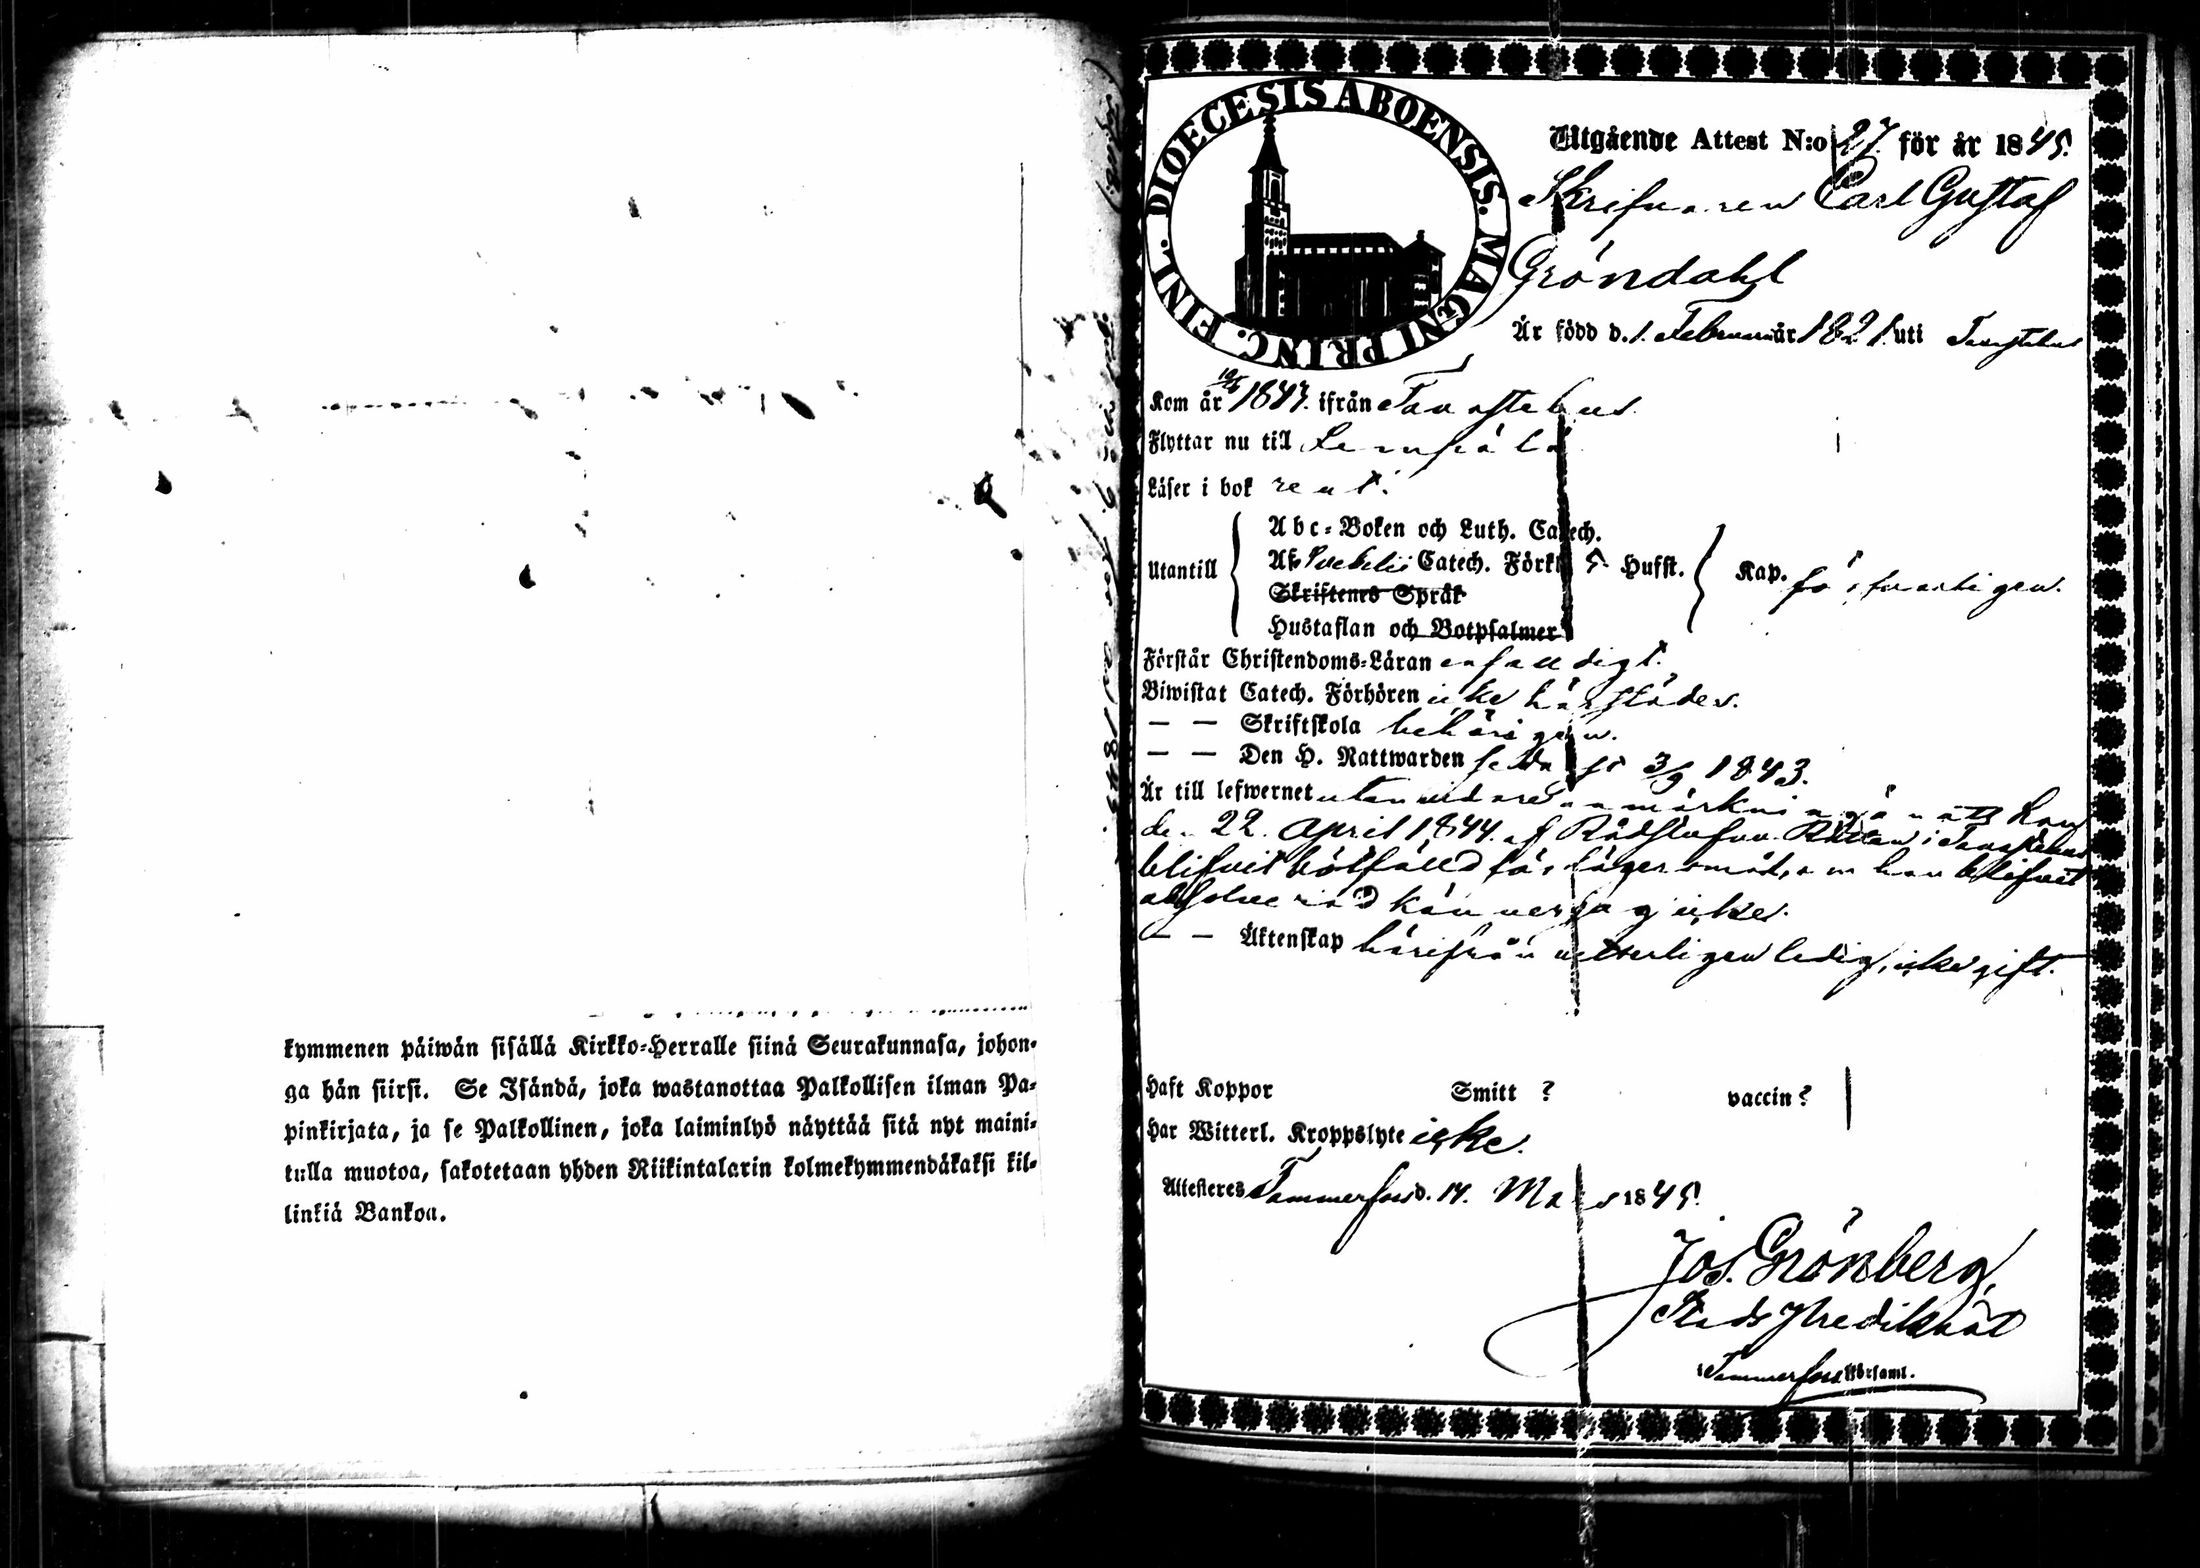 kymmenen päiwän sisällä Kirkko-Herralle siinä Seurakunnasa, johon-
ga hän siirsi. Se Isändä, joka wastanottaa Palkollisen ilman Pa-
pinkirjata, ja se Palkollinen, joka laiminlyö näyttää sitä nyt maini-
tulla muotoa, sakotetaan yhden Riikintalarin kolmekymmendäkaksi kil-
linkiä Bankoa.
DIOECESIS ABOENSIS. MAGNI PRINC. FINL.
Utgående Attest N:o 27. för år 1845.
Skrifvaren Carl Gustaf
Gröndahl
Är född d. 1. Februari år 1821. uti Tavastehus
Kom år 1843. ifrån Tavastehus.
Flyttar nu till Lempälä
Läser i bok rent.
Utantill
Abc-Boken och Luth. Catech.
Af Svebelii Catech. Förkl. 5. Hufst. Kap. försvarligen.
Skriftenes Språk
Hustaflan och Botpsalmer
Förstår Christendoms-Läran enfaldigt.
Biwistat Catech. Förhören icke härstädes.
— — Skriftskola behörigen.
— — Den H. Nattwarden sedn 3/9 1843.
Är till lefwernet utan vidare anmärkning än att han
den 22. April 1844. af Rådstufvu Rätten i Tavastehus
blifvit bötfälld för lägersmål, om han blifvit
absolverad känner jag icke.
— — Äktenskap härifrån vetterligen ledig, icke gift.
Haft Koppor Smitt ? vaccin ?
Har Witterl. Kroppslyte icke.
Attesteres Tammerfors d. 14. Mars 1845.
Jos. Grönberg,
Stads Predikant
i Tammerfors Församl.